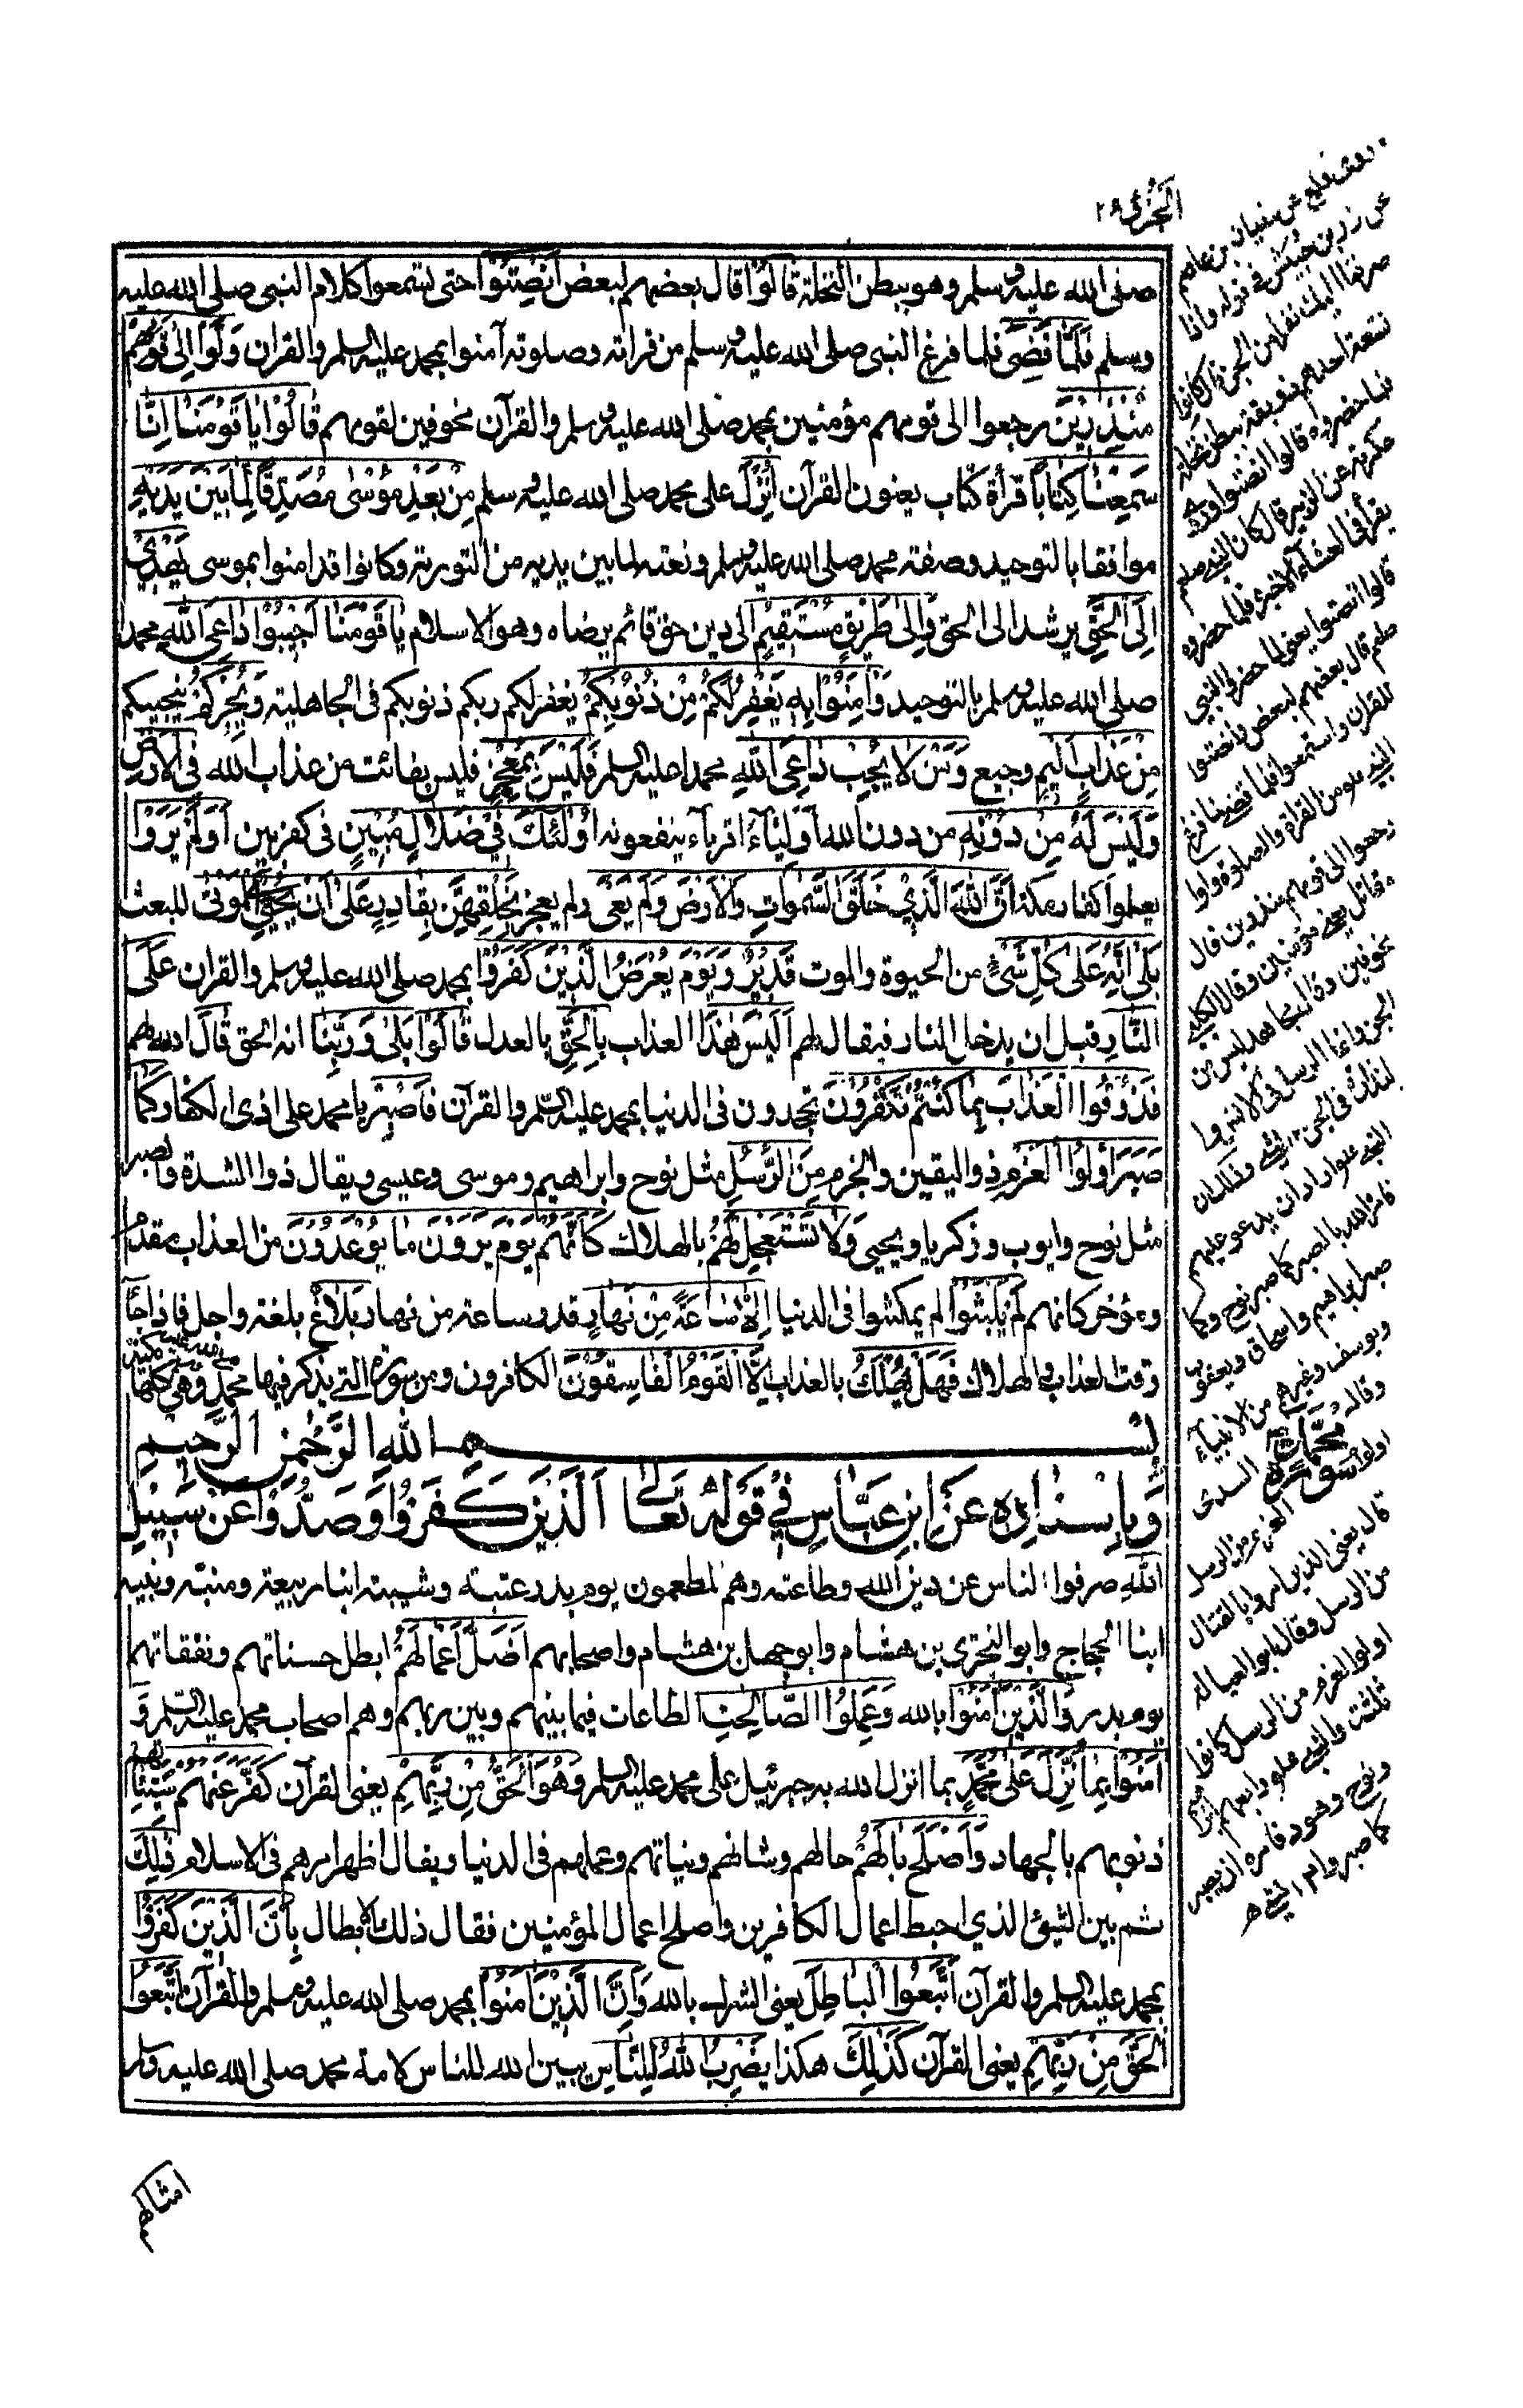 الجزئ ٢٦
صلى الله عليه وسلم وهو ببطن النخلة قَالُوْا قال بعضهم لبعض اَنْصِتُوْا حتى تستمعوا كلام النبي صلى الله عليه
وسلم فَلَمَّا قُضِىَ فلما فرغ النبي صلى الله عليه وسلم من قراته وصلوته آمنوا بمحمد عليه السلم والقران وَلَّوْا اِلٰى قَوْمِهِمْ
مُنْذِرِيْنَ رجعوا الى قومهم مؤمنين بمحمد صلى الله عليه وسلم والقرآن مخوفين لقومهم قَالُوْا يَا قَوْمَنَا اِنَّا
سَمِعْنَا كِتَابًا قرأة كتاب يعنون القرآن اُنْزِلَ على محمد صلى الله عليه وسلم مِنْ بَعْدِ مُوْسٰى مُصَدِّقًا لِّمَا بَيْنَ يَدَيْهِ
موافقا بالتوحيد وصفة محمد صلى الله عليه وسلم ونعته لما بين يديه من التورية وكانوا قد امنوا بموسى يَهْدِيْ
اِلَى الْحَقِّ يرشد الى الحق وَاِلٰى طَرِيْقٍ مُّسْتَقِيْمٍ الى دين حق قائم يرضاه وهو الاسلام يَا قَوْمَنَا اَجِيْبُوْا دَاعِيَ اللّٰهِ محمد
صلى الله عليه وسلم بالتوحيد وَاٰمِنُوْا بِهٖ يَغْفِرْ لَكُمْ مِنْ ذُنُوْبِكُمْ يغفر لكم ربكم ذنوبكم فى الجاهلية وَيُجِرْكُمْ ينجيكم
مِنْ عَذَابٍ اَلِيْمٍ وجيع وَمَنْ لَا يُجِبْ دَاعِيَ اللّٰهِ محمدا عليه السلم فَلَيْسَ بِمُعْجِزٍ فليس بفائت من عذاب الله فِى الْاَرْضِ
وَلَيْسَ لَهٗ مِنْ دُوْنِهٖ من دون الله اَوْلِيَآءُ اقرباء ينفعونه اُولٰئِكَ فِيْ ضَلَالٍ مُّبِيْنٍ فى كفر بين اَوَلَمْ يَرَوْا
يعلموا كفار مكة اَنَّ اللّٰهَ الَّذِيْ خَلَقَ السَّمٰوَاتِ وَالْاَرْضَ وَلَمْ يَعْيَ ولم يعجز بِخَلْقِهِنَّ بِقَادِرٍ عَلٰى اَنْ يُّحْيِيَ الْمَوْتٰى للبعث
بَلٰى اِنَّهٗ عَلٰى كُلِّ شَىْءٍ من الحيوة والموت قَدِيْرٌ وَيَوْمَ يُعْرَضُ الَّذِيْنَ كَفَرُوْا بمحمد صلى الله عليه وسلم والقران عَلَى
النَّارِ قبل ان يدخل النار فيقال لهم اَلَيْسَ هٰذَا العذاب بِالْحَقِّ بالعدل قَالُوْا بَلٰى وَرَبِّنَا انه الحق قَالَ الله لهم
فَذُوْقُوا الْعَذَابَ بِمَا كُنْتُمْ تَكْفُرُوْنَ تجحدون فى الدنيا بمحمد عليه السلم والقرآن فَاصْبِرْ يا محمد على اذى الكفار كَمَا
صَبَرَ اُولُوا الْعَزْمِ ذو اليقين والحزم مِنَ الرُّسُلِ مثل نوح وابراهيم وموسى وعيسى ويقال ذوا الشدة والصبر
مثل نوح وايوب وزكريا ويحيى وَلَا تَسْتَعْجِلْ لَّهُمْ بالهلاك كَاَنَّهُمْ يَوْمَ يَرَوْنَ مَا يُوْعَدُوْنَ من العذاب مقدم
ومؤخر كانهم لَمْ يَلْبَثُوْا لم يمكثوا فى الدنيا اِلَّا سَاعَةً مِنْ نَهَارٍ قدر ساعة من نهار بَلَاغٌ بلغة واجل فاذا جآ
وقت العذاب والهلاك فَهَلْ يُهْلَكُ بالعذاب اِلَّا الْقَوْمُ الْفَاسِقُوْنَ الكافرون ومن سورة التي يذكر فيها محمد صلى الله عليه وسلم وهي كلها مكية
بِسْمِ اللهِ الرَّحْمٰنِ الرَّحِيْمِ
وَبِاِسْنَادِهٖ عَنْ ابْنِ عَبَّاسٍ فِيْ قَوْلِهٖ تَعَالٰى اَلَّذِيْنَ كَفَرُوْا وَصَدُّوْا عَنْ سَبِيْلِ
اللّٰهِ صرفوا الناس عن دين الله وطاعته وهم المطعمون يوم بدر عتبة وشيبة ابنا ربيعة ومنبه ونبيه
ابنا الحجاج وابو البخترى بن هشام وابو جهل بن هشام واصحابهم اَضَلَّ اَعْمَالَهُمْ ابطل حسناتهم ونفقاتهم
يوم بدر وَالَّذِيْنَ اٰمَنُوْا بالله وَعَمِلُوا الصَّالِحٰتِ الطاعات فيما بينهم وبين ربهم وهم اصحاب محمد عليه السلم وَ
اٰمَنُوْا بِمَا نُزِّلَ عَلٰى مُحَمَّدٍ بما انزل الله به جبرئيل على محمد عليه السلم وَهُوَ الْحَقُّ مِنْ رَّبِّهِمْ يعنى القرآن كَفَّرَ عَنْهُمْ سَيِّئَاتِهِمْ
ذنوبهم بالجهاد وَاَصْلَحَ بَالَهُمْ حالهم وشانهم ونياتهم وعملهم فى الدنيا ويقال اظهر امرهم فى الاسلام ذٰلِكَ
ثم بين الشئ الذي احبط اعمال الكافرين واصلح اعمال المؤمنين فقال ذلك الابطال بِاَنَّ الَّذِيْنَ كَفَرُوْا
بمحمد عليه السلم والقرآن اتَّبَعُوا الْبَاطِلَ يعنى الشرك بالله وَاَنَّ الَّذِيْنَ اٰمَنُوْا بمحمد صلى الله عليه وسلم والقرآن اتَّبَعُوا
الْحَقَّ مِنْ رَّبِّهِمْ يعنى القرآن كَذٰلِكَ هكذا يَضْرِبُ اللّٰهُ لِلنَّاسِ يبين الله للناس لامة محمد صلى الله عليه وسلم
امثالهم
عن زر بن حبيش في قوله واذا
صرفنا اليك نفرا من الجن
قالوا انصتوا يعني لما حضروا النبي
صلعم قال بعضهم لبعض انصتوا
للقران واستمعوا فلما قضى فرغ
النبي من القراة والصلوة ولوا
رجعوا الى قومهم منذرين قال
مقاتل يعني مؤمنين وقال الكلبي
مخوفين وقال مجاهد ليس من
الجن وانما الرسل في الانس
فامر الله بالصبر كما صبر نوح وكما
صبر ابراهيم واسحاق ويعقوب
ويوسف وغيرهم من الانبياء
سورة محمد
قال يعني الذين امروا بالقتال
من الرسل وقال ابو العالية
اولوا العزم من الرسل كانوا
ثلثة والنبي رابعهم
ونوح وهود فامره ان يصبر
كما صبروا